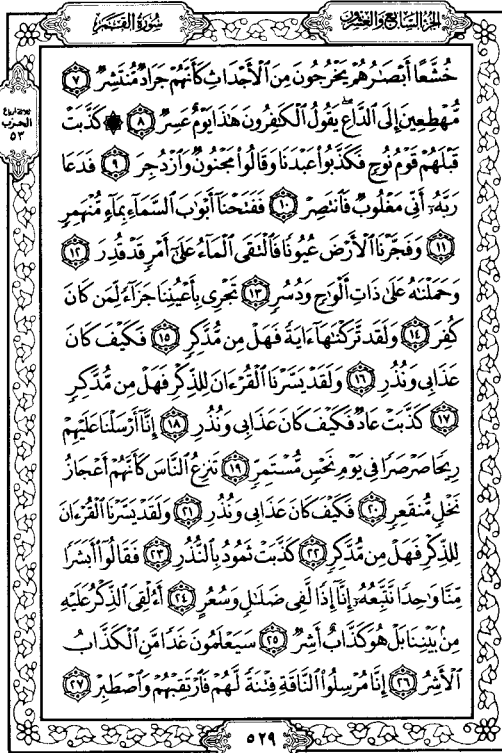 سُورَةُ القَمَرِ
الجزء السابع والعشرون
خُشَّعًا أَبْصَٰرُهُمْ يَخْرُجُونَ مِنَ ٱلْأَجْدَاثِ كَأَنَّهُمْ جَرَادٌ مُّنتَشِرٌ ٧
مُّهْطِعِينَ إِلَى ٱلدَّاعِ ۖ يَقُولُ ٱلْكَٰفِرُونَ هَٰذَا يَوْمٌ عَسِرٌ ٨ ۞ كَذَّبَتْ
قَبْلَهُمْ قَوْمُ نُوحٍ فَكَذَّبُوا۟ عَبْدَنَا وَقَالُوا۟ مَجْنُونٌ وَٱزْدُجِرَ ٩ فَدَعَا
رَبَّهُۥٓ أَنِّى مَغْلُوبٌ فَٱنتَصِرْ ١٠ فَفَتَحْنَآ أَبْوَٰبَ ٱلسَّمَآءِ بِمَآءٍ مُّنْهَمِرٍ
١١ وَفَجَّرْنَا ٱلْأَرْضَ عُيُونًا فَٱلْتَقَى ٱلْمَآءُ عَلَىٰٓ أَمْرٍ قَدْ قُدِرَ ١٢
وَحَمَلْنَٰهُ عَلَىٰ ذَاتِ أَلْوَٰحٍ وَدُسُرٍ ١٣ تَجْرِى بِأَعْيُنِنَا جَزَآءً لِّمَن كَانَ
كُفِرَ ١٤ وَلَقَد تَّرَكْنَٰهَآ ءَايَةً فَهَلْ مِن مُّدَّكِرٍ ١٥ فَكَيْفَ كَانَ
عَذَابِى وَنُذُرِ ١٦ وَلَقَدْ يَسَّرْنَا ٱلْقُرْءَانَ لِلذِّكْرِ فَهَلْ مِن مُّدَّكِرٍ
١٧ كَذَّبَتْ عَادٌ فَكَيْفَ كَانَ عَذَابِى وَنُذُرِ ١٨ إِنَّآ أَرْسَلْنَا عَلَيْهِمْ
رِيحًا صَرْصَرًا فِى يَوْمِ نَحْسٍ مُّسْتَمِرٍّ ١٩ تَنزِعُ ٱلنَّاسَ كَأَنَّهُمْ أَعْجَازُ
نَخْلٍ مُّنقَعِرٍ ٢٠ فَكَيْفَ كَانَ عَذَابِى وَنُذُرِ ٢١ وَلَقَدْ يَسَّرْنَا ٱلْقُرْءَانَ
لِلذِّكْرِ فَهَلْ مِن مُّدَّكِرٍ ٢٢ كَذَّبَتْ ثَمُودُ بِٱلنُّذُرِ ٢٣ فَقَالُوٓا۟ أَبَشَرًا
مِّنَّا وَٰحِدًا نَّتَّبِعُهُۥٓ إِنَّآ إِذًا لَّفِى ضَلَٰلٍ وَسُعُرٍ ٢٤ أَءُلْقِىَ ٱلذِّكْرُ عَلَيْهِ
مِنۢ بَيْنِنَا بَلْ هُوَ كَذَّابٌ أَشِرٌ ٢٥ سَيَعْلَمُونَ غَدًا مَّنِ ٱلْكَذَّابُ
ٱلْأَشِرُ ٢٦ إِنَّا مُرْسِلُوا۟ ٱلنَّاقَةِ فِتْنَةً لَّهُمْ فَٱرْتَقِبْهُمْ وَٱصْطَبِرْ ٢٧
الحزب
٥٣
٥٢٩